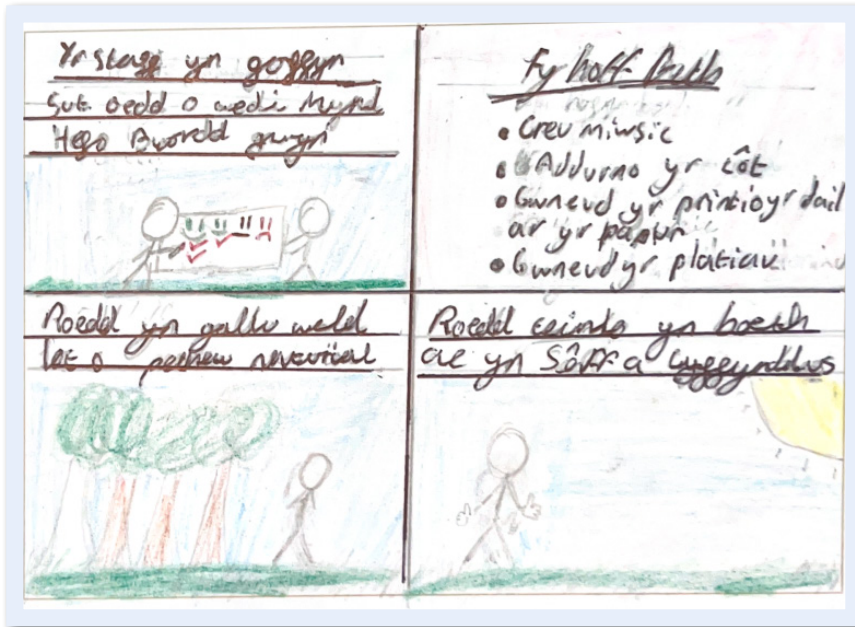 Yr staff yn goffyn
Sut oedd o wedi mynd
Hefo Bwordd gwyn
Fy hoff Peth
• Creu miwsic
• Addurno yr côt
• Gwneud yr printio yr dail
ar yr papur
• Gwneud yr platiau
Roedd yn gallu weld
lot o pethew
Roedd teimlo yn boeth
ac yn Sâff a Cyffyrddus